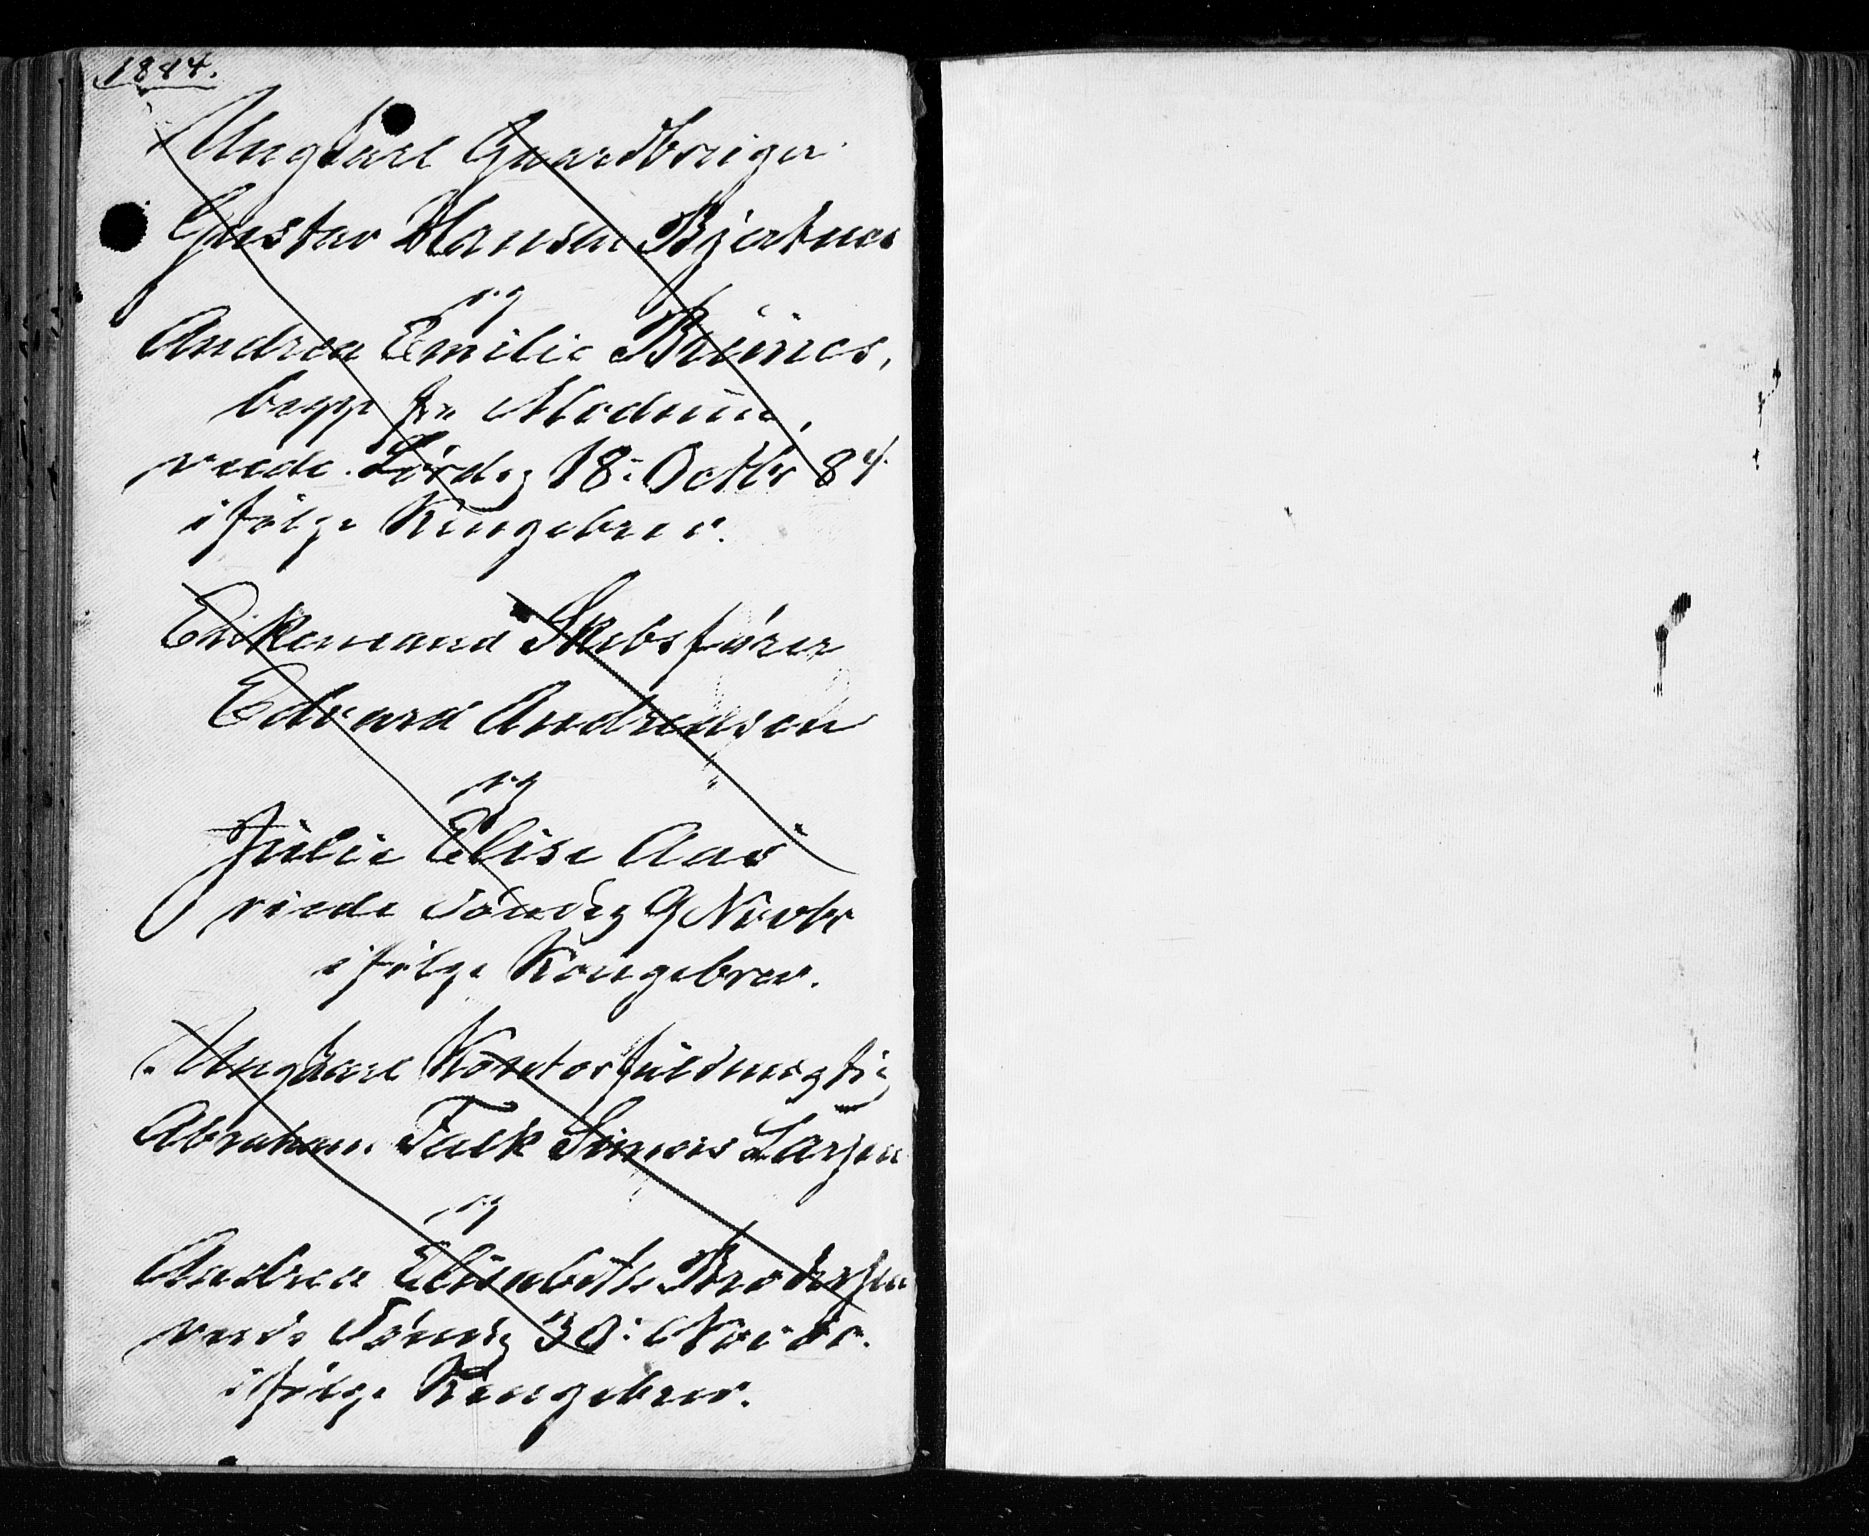 1884.
Ungkarl Gaardbruger
Gustav Hansen Bjertnes
og
Andrea Emilie
begge fra Modum,
viede Lördag 18: Octbr 84
ifölge Kongebrev.
Enkemand Skibsförer
Edvard Andreasen
og
Julie Elise Aas
viede Söndag 9 Novbr
ifölge Kongebrev.
Ungkarl Kontorfuldmægtig
Abraham Falk Larsen
og
Andrea Elisabeth Brodersen
viede Söndag 30: Novbr.
ifölge Kongebrev.